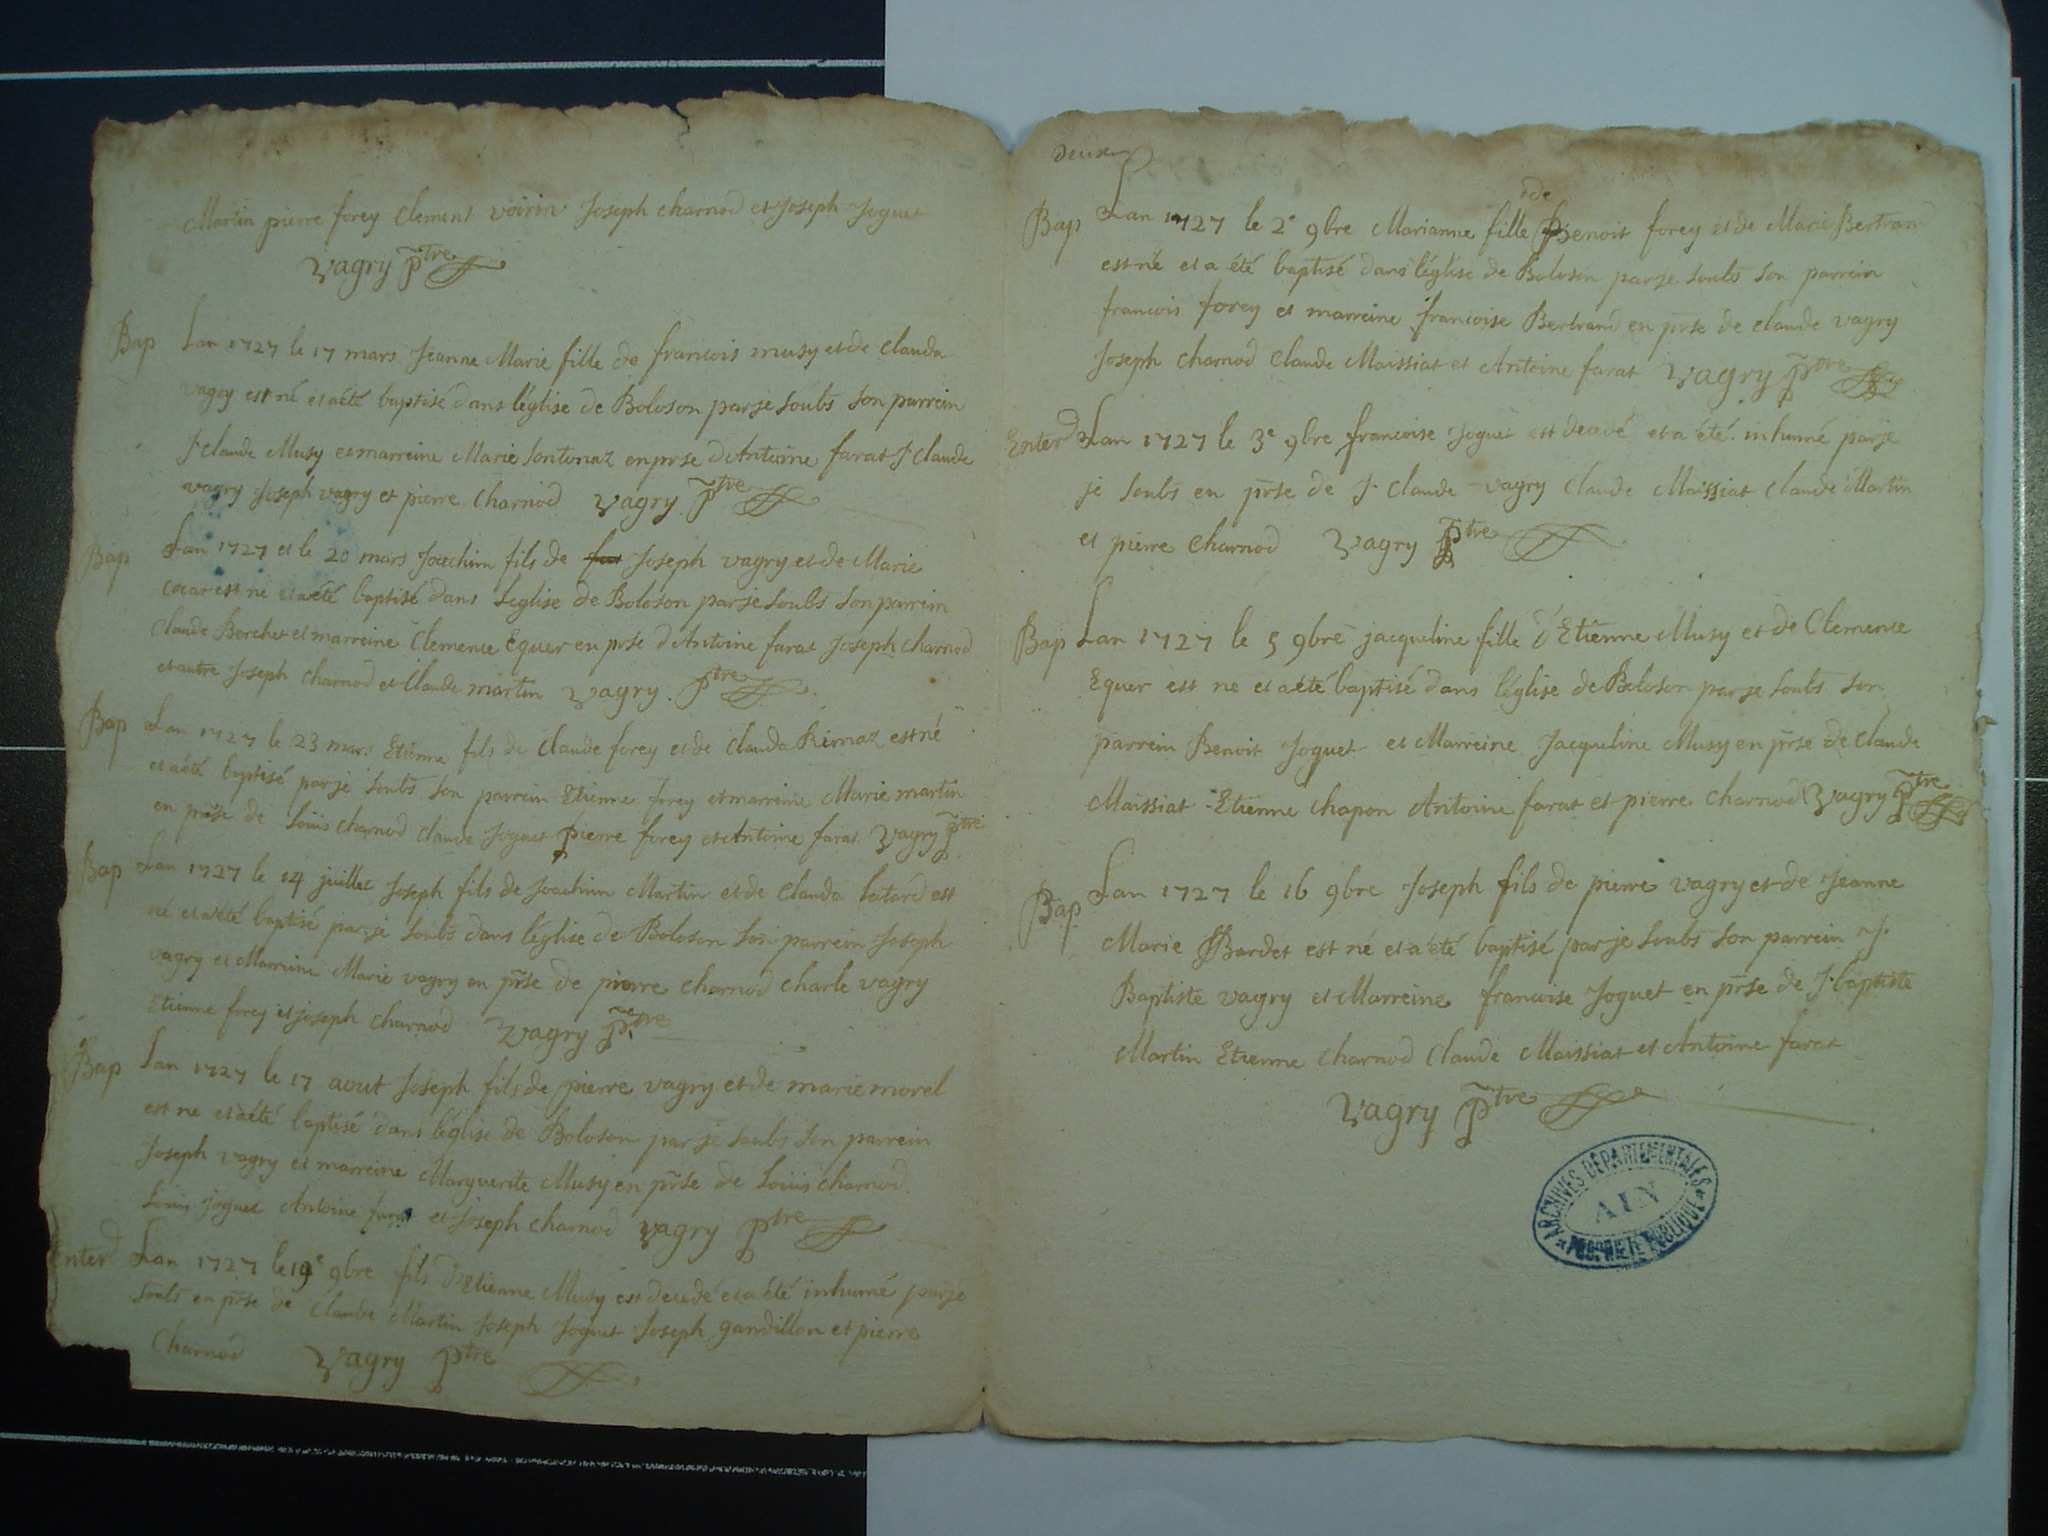 Martin pierre forey Clement voirin Joseph charnod et Joseph Joguet
Vagry ptre
Bap Lan 1727 le 17 mars Jeanne Marie fille de francois musy et de clauda
vagry est né et a été baptisé dans léglise de Boloson par je soubs son parrein
J claude Musy et marreine Marie sontonaz en prse d'Antoine farat J claude
vagry Joseph vagry et pierre Charnod Vagry ptre
Bap Lan 1727 et le 20 mars Joachim fils de Joseph vagry et de Marie
est né et a été baptisé dans leglise de Boloson par je soubs son parrein
Claude Berchet et marreine Clemence Equer en prse d'Antoine farat Joseph Charnod
et autre Joseph Charnod et Claude martin Vagry ptre
Bap Lan 1727 le 23 mars Etienne fils de claude forey et de clauda Rimaz est né
et a été baptisé par je soubs son parrein Etienne forey et marreine Marie martin
en prse de Louis charnod claude Joguet pierre forey et Antoine farat Vagry ptre
Bap Lan 1727 le 14 juillet Joseph fils de Joachim Martin et de Clauda est
né et a été baptisé par je soubs dans léglise de Boloson son parrein Joseph
vagry et Marreine Marie vagry en prse de pierre charnod charle vagry
Etienne forey et joseph charnod Vagry ptre
Bap Lan 1727 le 17 aout Joseph fils de pierre vagry et de marie morel
est ne et a été baptisé dans léglise de Boloson par je soubs son parrein
Joseph vagry et marreine Marguerite Musy en prse de Louis charnod
Louis joguet Antoine farat et Joseph charnod Vagry ptre
Enter Lan 1727 le 19e 9bre fils d'Etienne Musy est decedé et a été inhumé par je
soubs en prse de Claude Martin Joseph Joguet Joseph gandillon et pierre
Charnod Vagry ptre
deux
de
Bap Lan 1727 le 2e 9bre Marianne fille Benoit forey et de Marie Bertrand
est né et a été baptisé dans léglise de Boloson par je soubs son parrein
francois forey et marreine francoise Bertrand en prse de claude vagry
Joseph charnod Claude Maissiat et Antoine farat Vagry ptre
Enter Lan 1727 le 3e 9bre francoise Joguet est decedé et a été inhumé par je
je soubs en prse de J Claude vagry Claude Maissiat Claude Martin
et pierre Charnod Vagry ptre
Bap Lan 1727 le 5 9bre jacqueline fille d'Etienne Musy et de Clemence
Equer est ne et a été baptisé dans léglise de Boloson par je soubs son
parrein Benoit Joguet et Marreine Jacqueline Musy en prse de Claude
Maissiat Etienne Chapon Antoine farat et pierre Charnod Vagry ptre
Bap Lan 1727 le 16 9bre Joseph fils de pierre vagry et de Jeanne
Marie Bardet est né et a été baptisé par je soubs son parrein J.
Baptiste vagry et Marreine francoise Joguet en prse de J baptiste
Martin Etienne Charnod Claude Maissiat et Antoine farat
Vagry ptre
ARCHIVES DEPARTEMENTALES
AIN
PROPRIETE PUBLIQUE